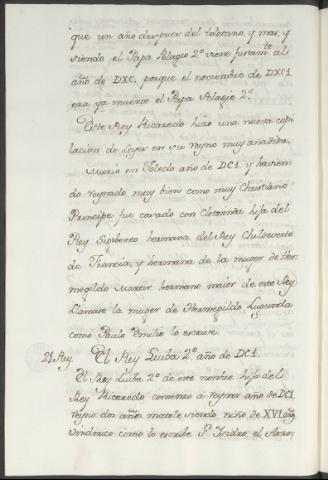 que un año despues del toletano, y mas, y
siendo el Papa Pelagio 2º viene justamte al
año de DXC. porque el noviembre de DXC1
era ya muerto el Papa Pelagio 2º.
Este Rey Ricaredo hizo una nueva copi
lacion de Leyes en su reyno muy añadida.
Murio en Toledo año de DC1. y havien
do reynado muy bien como muy Christiano
Principe fue casado con Clotosinda hija del
Rey Sigiberto hermana del Rey Childeverto
de Francia, y hermana de la muger de Her
megildo Martir hermano maior de este Rey
Llamase la muger de Hermegildo Lugunda
como Paulo Emilio lo escrive.
21. Rey. El Rey Luiba 2º año de DC1.
El Rey Luiba 2º de este nombre hijo del
Rey Ricaredo comenzo a reynar año de DC1
reyno dos años matole siendo niño de XVI años
Vinderico como lo escribe Sn Isidro, el Arzo-